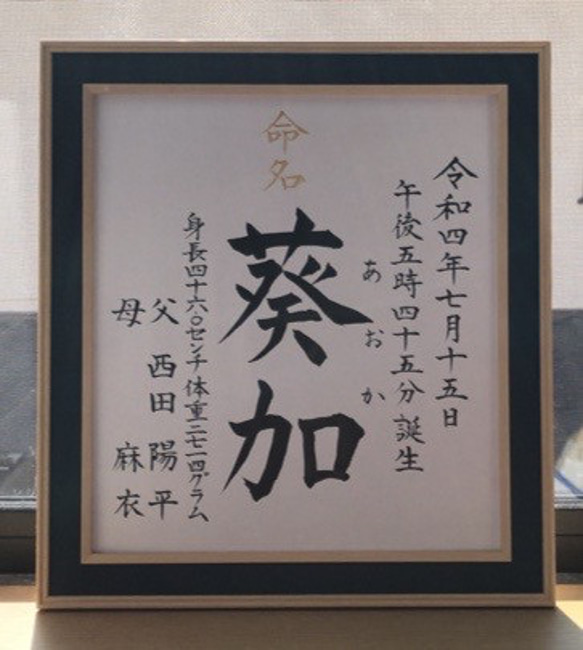 令和四年七月十五日
午後五時四十五分 誕生
命名
あおか
葵加
身長四十六〇センチ 体重二七一四グラム
父 西田 陽平
母 麻衣